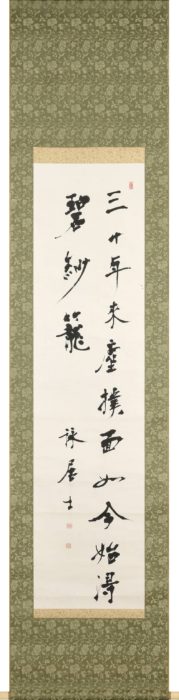 三十年来塵撲面如今始得
碧紗籠
詠居士